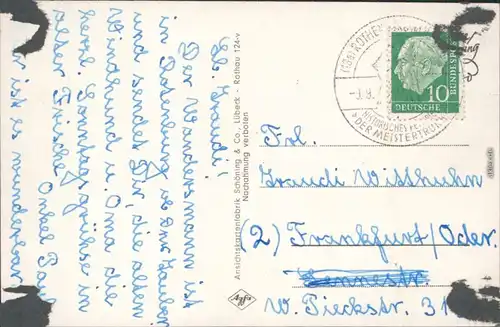 Lb. Traudi!
Der Wandersmann ist
in Rotenburg o. der Tauber
und sendet Dir, die alten
u. Oma die
herzl. Sonntagsgrüsse in
alter Frische,
Onkel Paul
hier ist es wunderbar
Ansichtskartenfabrik Schöning & Co., Lübeck · Rothbu 124-v
Nachahmung verboten
Agfa
(13a) ROTHE
HISTORISCHES FE
»DER MEISTERTRUNK
DEUTSCHE BUNDESPOST
10
Frl.
Traudi Witthuhn
(2) Frankfurt/Oder
W. Pieckstr. 31